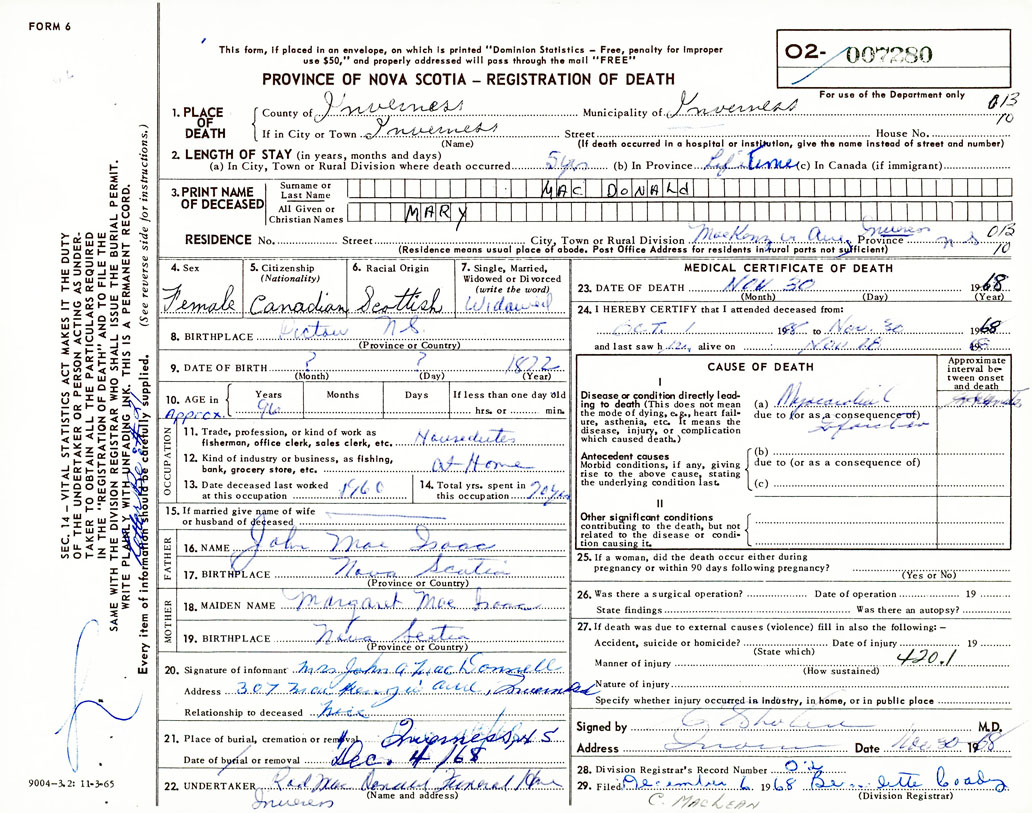 FORM 6
This form, if placed in an envelope, on which is printed "Dominion Statistics – Free, penalty for improper
use $50," and properly addressed will pass through the mail "FREE"
PROVINCE OF NOVA SCOTIA – REGISTRATION OF DEATH
O2- 007280
For use of the Department only
013
10
1. PLACE OF DEATH
County of Inverness Municipality of Inverness
If in City or Town Inverness Street House No.
(Name) (If death occurred in a hospital or institution, give the name instead of street and number)
2. LENGTH OF STAY (in years, months and days)
(a) In City, Town or Rural Division where death occurred 5 yrs (b) In Province Life Time (c) In Canada (if immigrant)
3. PRINT NAME OF DECEASED
Surname or Last Name MAC DONALD
All Given or Christian Names MARY
RESIDENCE No. Street City, Town or Rural Division MacKenzie Ave, Inverness Province N S
013
10
(Residence means usual place of abode. Post Office Address for residents in rural parts not sufficient)
4. Sex Female
5. Citizenship (Nationality) Canadian
6. Racial Origin Scottish
7. Single, Married, Widowed or Divorced (write the word) Widowed
8. BIRTHPLACE Pictou N.S.
(Province or Country)
9. DATE OF BIRTH ? ? 1872
(Month) (Day) (Year)
10. AGE in Approx. Years 96 Months Days If less than one day old
hrs. or min.
OCCUPATION
11. Trade, profession, or kind of work as fisherman, office clerk, sales clerk, etc. Houseduties
12. Kind of industry or business, as fishing, bank, grocery store, etc. at Home
13. Date deceased last worked at this occupation 1960
14. Total yrs. spent in this occupation 70 yrs
15. If married give name of wife
or husband of deceased
FATHER
16. NAME John Mac Isaac
17. BIRTHPLACE Nova Scotia
(Province or Country)
MOTHER
18. MAIDEN NAME Margaret Mac Isaac
19. BIRTHPLACE Nova Scotia
(Province or Country)
20. Signature of informant Mrs John A MacDonnell
Address 307 MacKenzie Ave, Inverness
Relationship to deceased
21. Place of burial, cremation or removal Inverness, N S
Date of burial or removal Dec. 4/68
22. UNDERTAKER Rod Mac Donald Funeral Home
(Name and address)
Inverness
MEDICAL CERTIFICATE OF DEATH
23. DATE OF DEATH Nov 30 1968
(Month) (Day) (Year)
24. I HEREBY CERTIFY that I attended deceased from:
Oct. 1 1968 to Nov. 30 1968
and last saw her alive on Nov 28 1968
CAUSE OF DEATH
Approximate interval between onset and death
I
Disease or condition directly leading to death (This does not mean the mode of dying, e.g., heart failure, asthenia, etc. It means the disease, injury, or complication which caused death.)
(a) Myocardial
due to (or as a consequence of)
Infarction
Antecedent causes
Morbid conditions, if any, giving rise to the above cause, stating the underlying condition last.
(b)
due to (or as a consequence of)
(c)
II
Other significant conditions
contributing to the death, but not related to the disease or condition causing it.
25. If a woman, did the death occur either during
pregnancy or within 90 days following pregnancy?
(Yes or No)
26. Was there a surgical operation? Date of operation 19
State findings Was there an autopsy?
27. If death was due to external causes (violence) fill in also the following: –
Accident, suicide or homicide? Date of injury 19
(State which)
420.1
Manner of injury
(How sustained)
Nature of injury
Specify whether injury occurred in Industry, in home, or in public place
Signed by M.D.
Address Date Nov 30 1968
28. Division Registrar's Record Number
29. Filed December 6 1968 Bernadette Coady
(Division Registrar)
C. MacLean
SEC. 14 – VITAL STATISTICS ACT MAKES IT THE DUTY
OF THE UNDERTAKER OR PERSON ACTING AS UNDER-
TAKER TO OBTAIN ALL THE PARTICULARS REQUIRED
IN THE "REGISTRATION OF DEATH" AND TO FILE THE
SAME WITH THE DIVISION REGISTRAR WHO SHALL ISSUE THE BURIAL PERMIT.
WRITE PLAINLY WITH UNFADING INK. THIS IS A PERMANENT RECORD.
Every item of information should be carefully supplied. (See reverse side for instructions.)
9004-3.2: 11-3-65